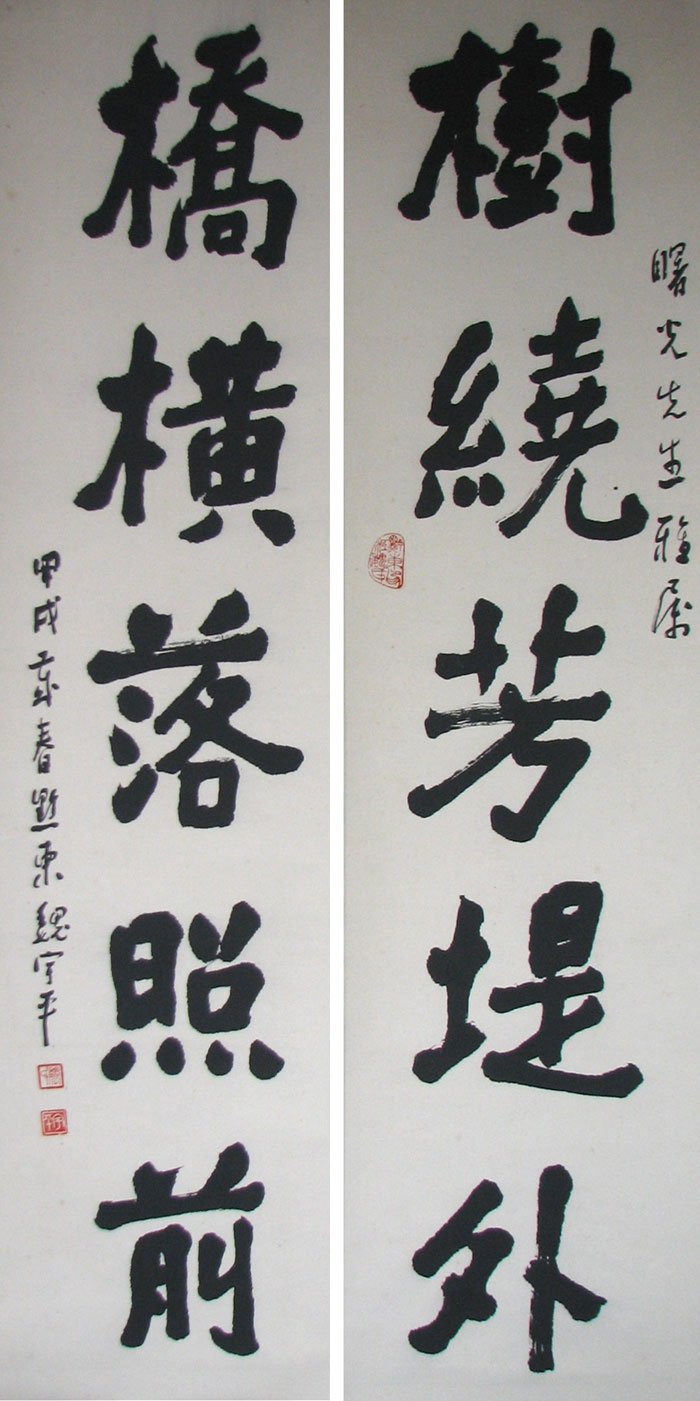 樹繞芳堤外
曙光先生雅屬
橋橫落照前
甲戌春黔東魏宇平